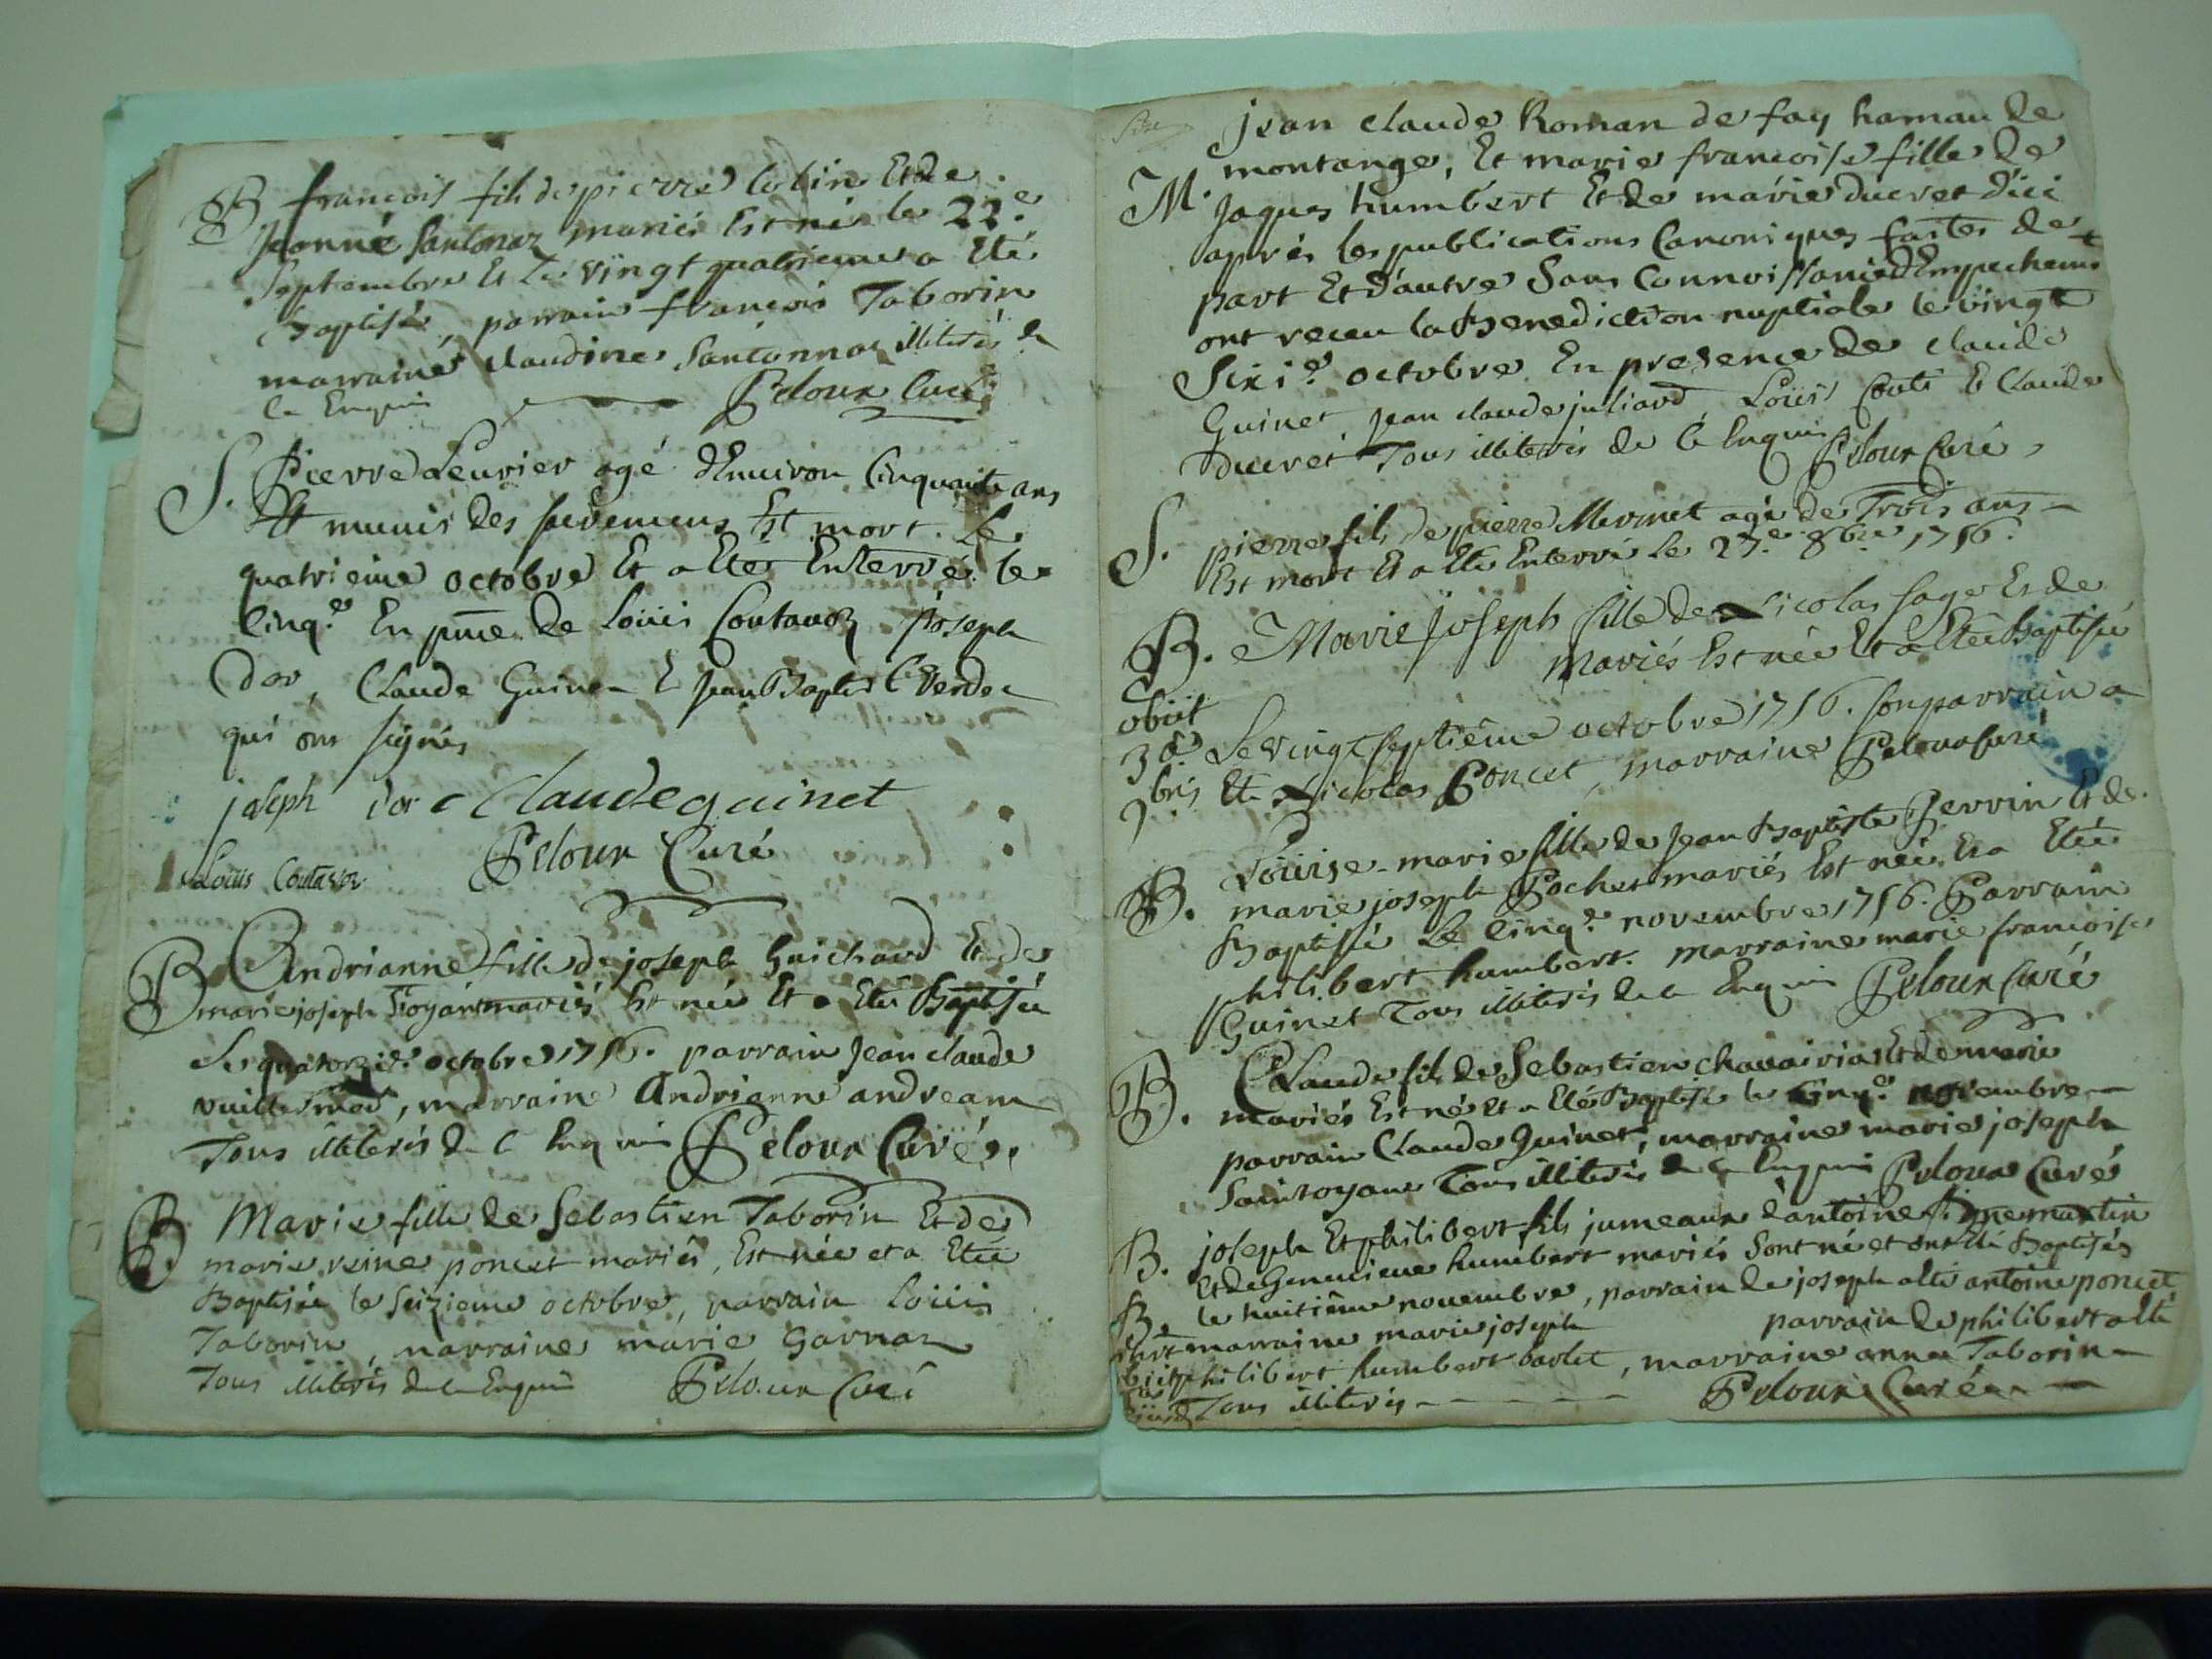 B françois fils de pierre Cobin Et de
Jeanne Santonaz mariés Est né le 22.e
Septembre Et Le vingt quatrieme a Eté
Baptisé, parrain françois Taborin
marraine Claudine Santonnaz illiterés de
ce Enquis Peloux Curé
S. Pierre Leurier agé dEnuiron Cinquante ans
Et munis des sacremens Est mort Le
quatrieme octobre Et a Etes Enterré le
Cinq.e En pnce de Loüis Coutauoz, Joseph
Dor, Claude Guinet & Jean Baptiste
qui ont signés
joseph Dor Claude guinet
Loüis Coutavoz Peloux Curé
B Andrianne fille de joseph Guichard Et de
marie joseph mariés Est née Et a Eté Baptisée
Le quatorzie.e octobre 1756. parrain Jean claude
vuillermoz, marraine Andrianne andreane
Tous illiterés de ce Enquis Peloux Curé.
B. Marie fille de Sebastien Taborin Et de
marie reine poncet mariés, Est née et a Eteé
Baptisée le seizieme octobre, parrain Loüis
Taborin, marraine marie Garnaz
Tous illiterés de ce Enquis Peloux Curé
Jean claude Roman de fay hamau de
montange, Et marie francoise fille de
M. Jaques humbert Et de marie ducret dici
aprés les publications Canoniques faites de
part Et d'autre Sans Connoissance dEmpechemt
ont receu la Benediction nuptiale le vingt
Sixi.e octobre En presence de claude
Guinet, Jean claude juliard, Loüis Couta & Claude
Ducret Tous illiterés de ce Enquis Peloux Curé,
S. pierre fils de pierre Mermet agé de Trois ans
Est mort Et a Eté Enterré le 27.e 8bre 1756.
B. Marie Joseph fille de Nicolas sage Et de
mariés Est née Et a Eteé Baptisée
obiit
3a Le vingt septième octobre 1756. son parrain a
9bris Eté Nicolas Poncet, marraine Peloux Curé
B. Loüise-marie fille de Jean Baptiste Perrin Et de
marie joseph Pochet mariés Est née, Et a Eteé
Baptisée Le Cinq.e novembre 1756. Parrain
philibert humbert. marraine marie francoise
Guinet Tous illiterés de ce Enquis Peloux Curé
B. Claude fils de Sebastien chavairiat Et de marie
mariés Est né Et a Eté Baptisé le Cinq.e novembre
parrain Claude Guinet, marraine marie joseph
Saintoyant Tous illiterés de ce Enquis Peloux Curé
B. joseph Et philibert fils jumeaux d'antoine martin
Et de Geneuieue humbert mariés Sont né et ont Eté Baptisés
B. le huitième nouembre, parrain de joseph a Eté antoine poncet
marraine marie joseph parrain de philibert a Eté
philibert humbert barlet, marraine anne Taborin
Tous illiterés Peloux Curé